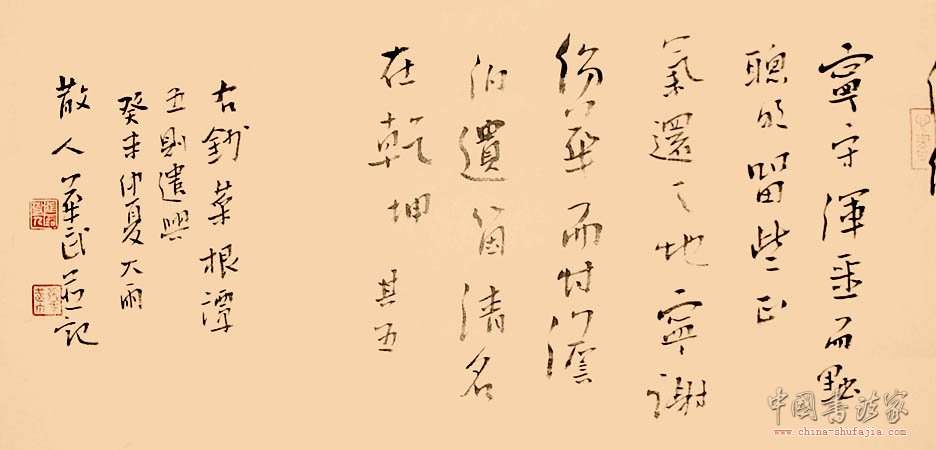 寧守渾噩而黜
聰明留些正
氣還天地寧謝
紛華而甘澹
泊遺箇清名
在乾坤 其五
右鈔菜根譚
五則遣興
癸未仲夏大雨
散人 並記
中国书法家
www.china-shufajia.com